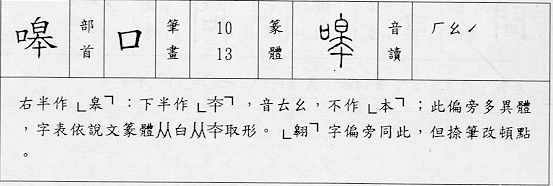 嗥 部首 口 筆畫 10 13 篆體 音讀 ㄏㄠˊ
右半作「皋」:下半作「夲」,音ㄊㄠ,不作「本」;此偏旁多異體
,字表依說文篆體从白从夲取形。「翱」字偏旁同此,但捺筆改頓點
。